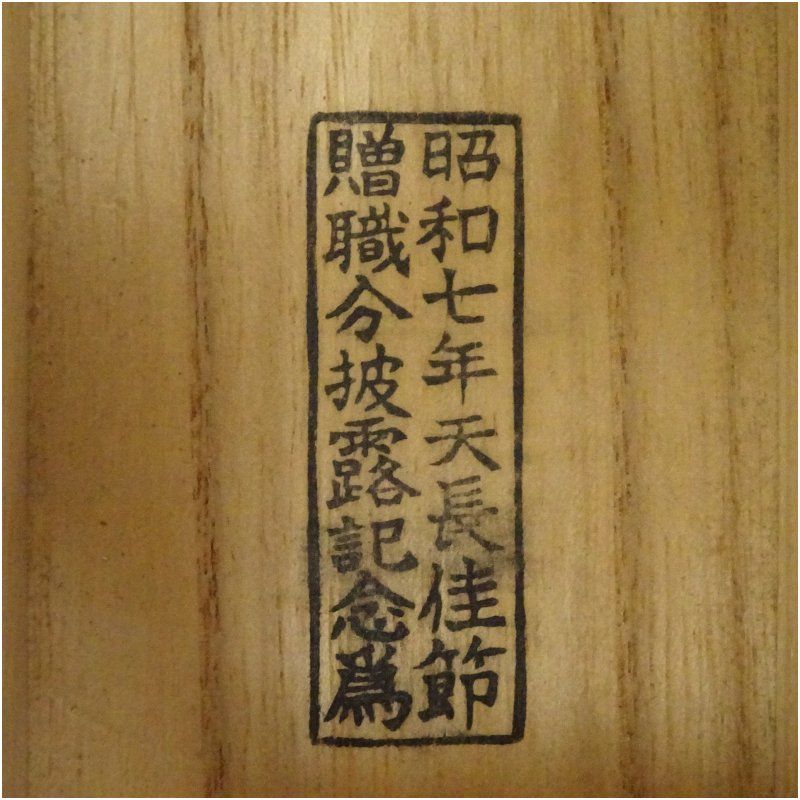 昭和七年天長佳節
贈職分披露記念為